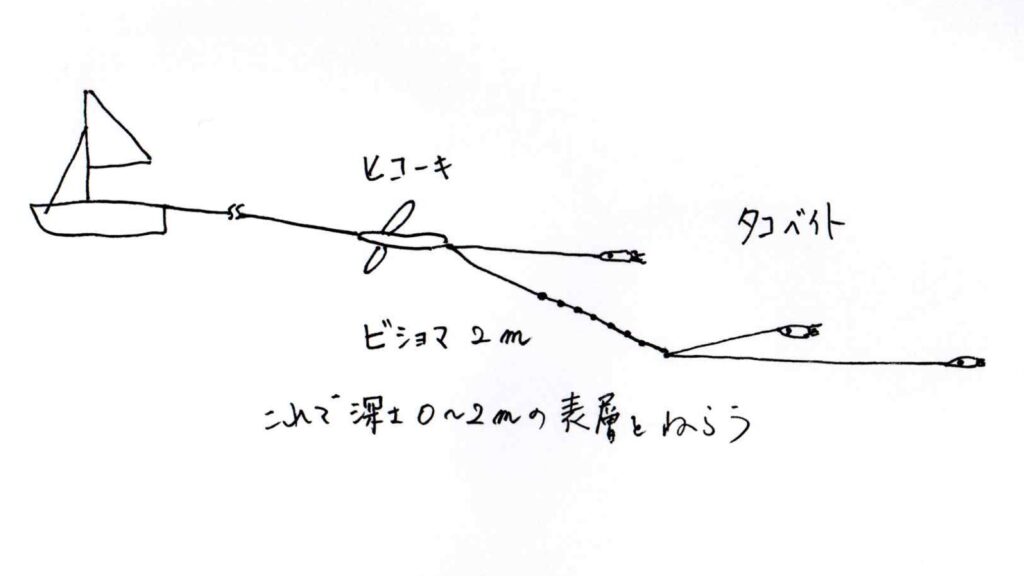 ヒコーキ
タコベイト
ビショマ 2m
これで深さ0~2mの表層をねらう